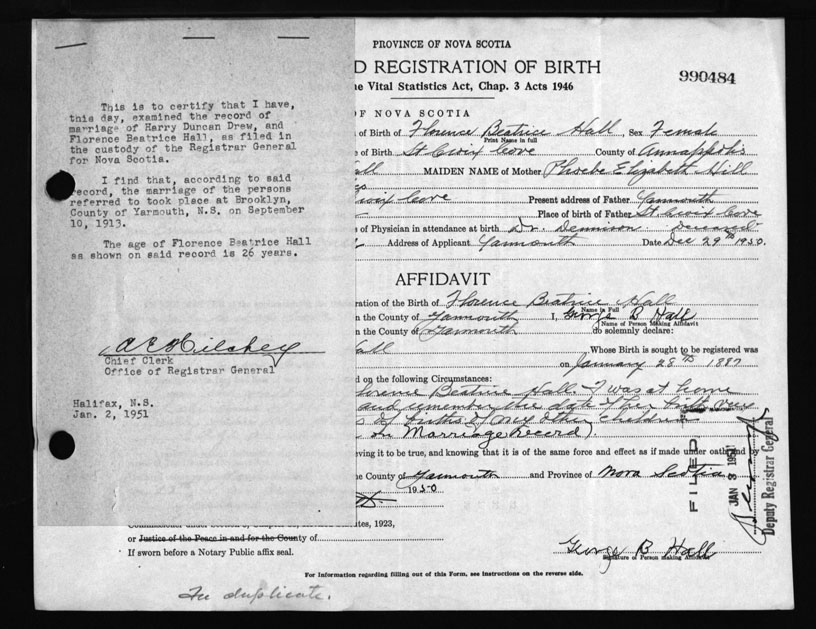 This is to certify that I have,
this day, examined the record of
marriage of Harry Duncan Drew, and
Florence Beatrice Hall, as filed in
the custody of the Registrar General
for Nova Scotia.
I find that, according to said
record, the marriage of the persons
referred to took place at Brooklyn,
County of Yarmouth, N.S. on September
10, 1913.
The age of Florence Beatrice Hall
as shown on said record is 26 years.
Chief Clerk
Office of Registrar General
Halifax, N.S.
Jan. 2, 1951
PROVINCE OF NOVA SCOTIA
D REGISTRATION OF BIRTH
e Vital Statistics Act, Chap. 3 Acts 1946
990484
OF NOVA SCOTIA
of Birth of Florence Beatrice Hall, Sex Female
Print Name in full
of Birth St Croix Cove County of Annapolis
all MAIDEN NAME of Mother Phoebe Elizabeth Hill
Croix Cove Present address of Father Yarmouth
Place of birth of Father St Croix Cove
of Physician in attendance at birth Dr. Dennison. Deceased
Address of Applicant Yarmouth Date Dec 29th 1950.
AFFIDAVIT
ration of the Birth of Florence Beatrice Hall
Name in Full
n the County of Yarmouth I, George B Hall
Name of Person Making Affidavit
n the County of Yarmouth do solemnly declare:
Hall ,Whose Birth is sought to be registered was
on January 28th 1887
d on the following Circumstances:
lorence Beatrice Hall I was at home
and remember the date of her birth very
s of births of my other children
on Marriage Record)
eving it to be true, and knowing that it is of the same force and effect as if made under oath and by
e County of Yarmouth and Province of Nova Scotia
1950
tes, 1923,
or Justice of the Peace in and for the County of
If sworn before a Notary Public affix seal.
George B Hall
Signature of Person making Affidavit
For Information regarding filling out of this Form, see instructions on the reverse side.
In duplicate.
FILED
JAN 3 1951
Deputy Registrar General